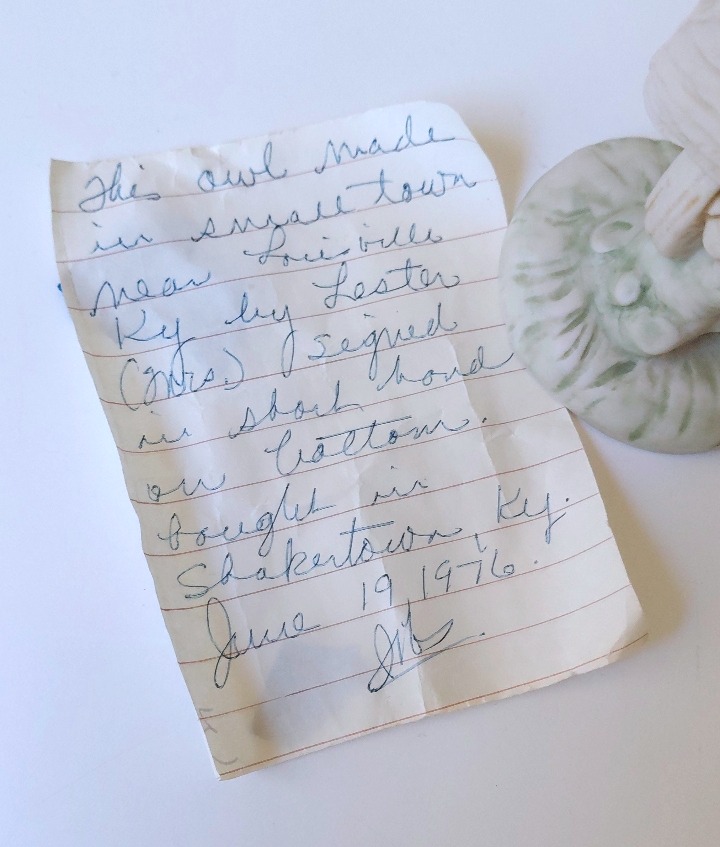 This owl made
in small town
near Louisville
Ky by Lester
(Mrs.) signed
in short hand
on bottom.
bought in
Shakertown, Ky.
June 19 1976.